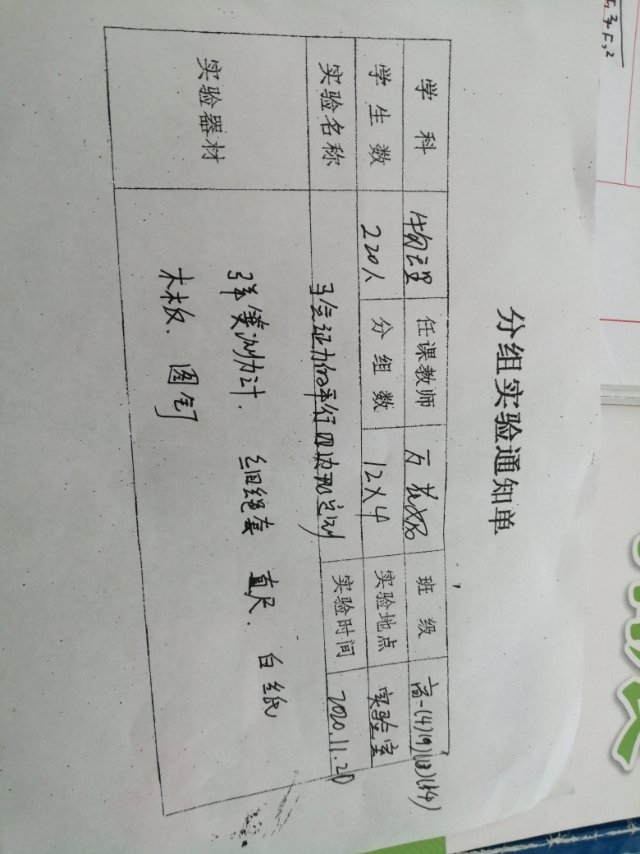 分组实验通知单
学科 物理 任课教师 班级 高一(4)(9)(13)(14)
学生数 220人 分组数 12×4 实验地点 实验室
实验名称 验证力的平行四边形定则 实验时间 2020.11.20
实验器材 弹簧测力计. 细绳套 直尺. 白纸
木板. 图钉